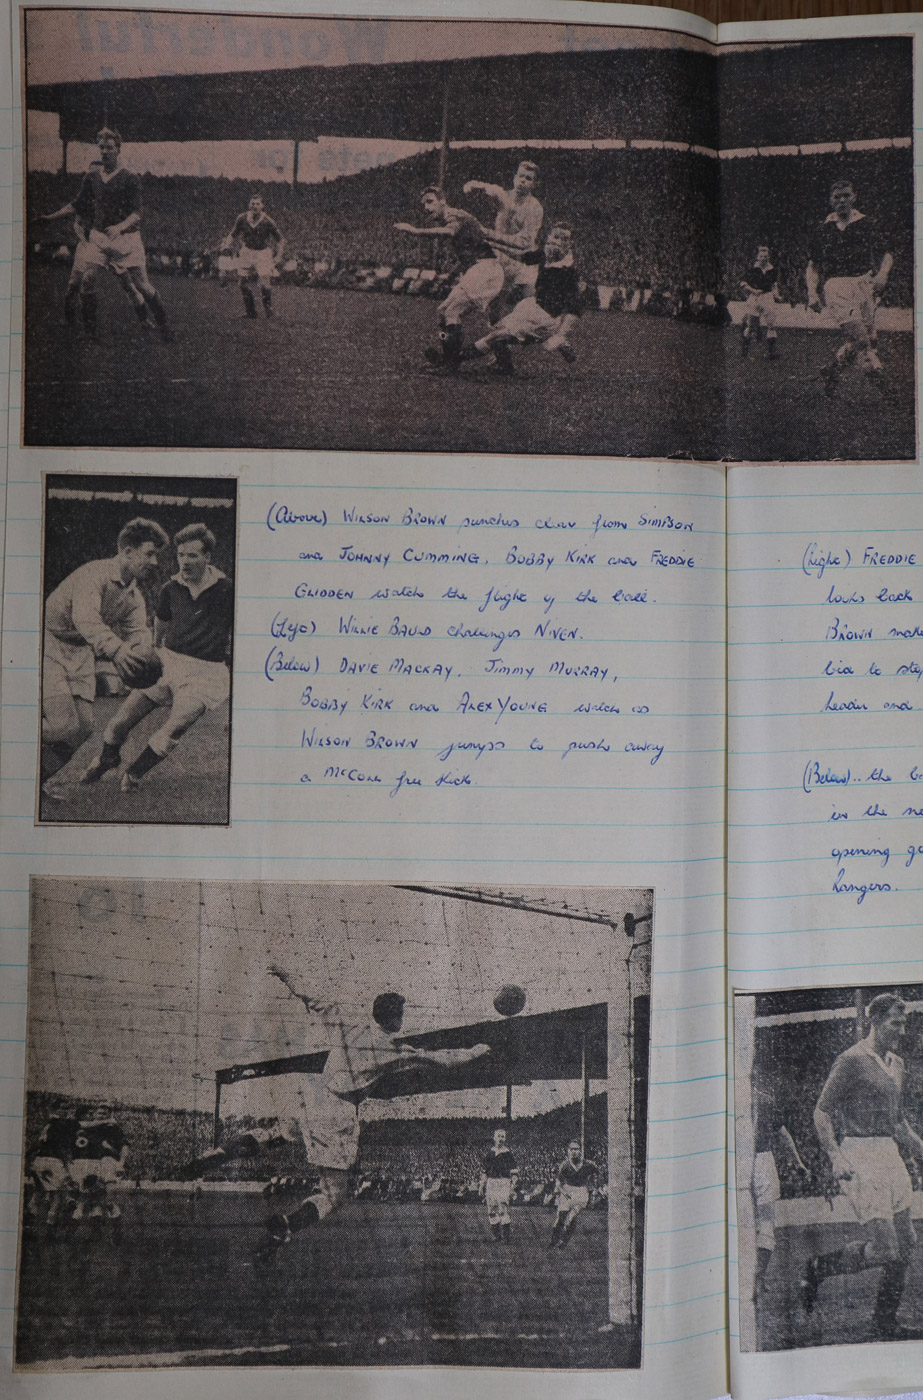 (Above) WILSON BROWN punches clear from SIMPSON
and JOHNNY CUMMING, BOBBY KIRK and FREDDIE
GLIDDEN watch the flight of the ball.
(Left) WILLIE BAULD challenges NIVEN.
(Below) DAVIE MACKAY, JIMMY MURRAY,
BOBBY KIRK and ALEX YOUNG watch as
WILSON BROWN jumps to push away
a McCOLL free kick.
(Right) FREDDIE
looks back
BROWN
bid to
header and
(Below).. the
in the
opening
Rangers.